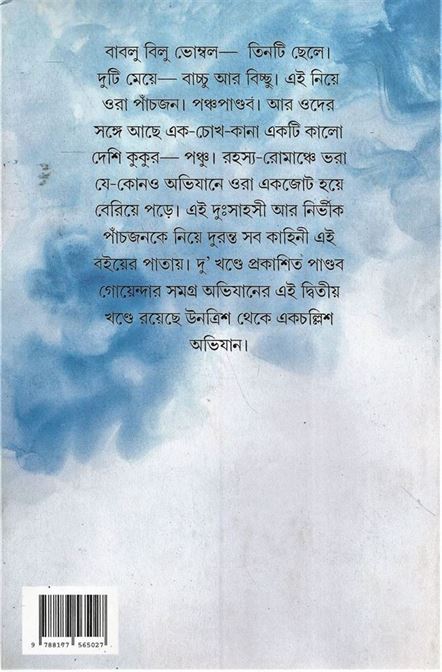 বাবলু বিলু ভোম্বল— তিনটি ছেলে।
দুটি মেয়ে— বাচ্চু আর বিচ্ছু। এই নিয়ে
ওরা পাঁচজন। পঞ্চপাণ্ডব। আর ওদের
সঙ্গে আছে এক-চোখ-কানা একটি কালো
দেশি কুকুর— পঞ্চু। রহস্য-রোমাঞ্চে ভরা
যে-কোনও অভিযানে ওরা একজোট হয়ে
বেরিয়ে পড়ে। এই দুঃসাহসী আর নির্ভীক
পাঁচজনকে নিয়ে দুরন্ত সব কাহিনী এই
বইয়ের পাতায়। দু’ খণ্ডে প্রকাশিত পাণ্ডব
গোয়েন্দার সমগ্র অভিযানের এই দ্বিতীয়
খণ্ডে রয়েছে উনত্রিশ থেকে একচল্লিশ
অভিযান।
9 788177 565027